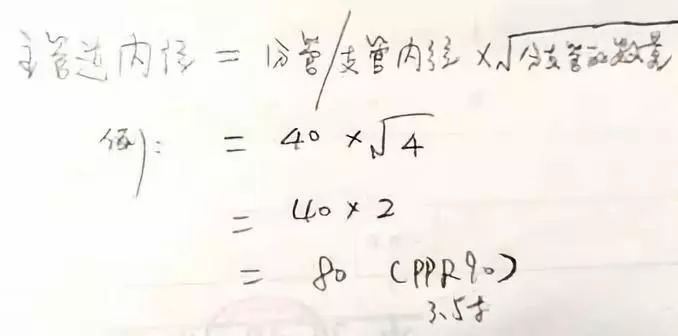 主管道内径 = 分管/支管内径 × √分支管的数量
例: = 40 × √4
= 40 × 2
= 80 (PPR90)
3.5寸